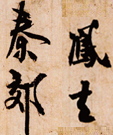 鳳去
秦郊